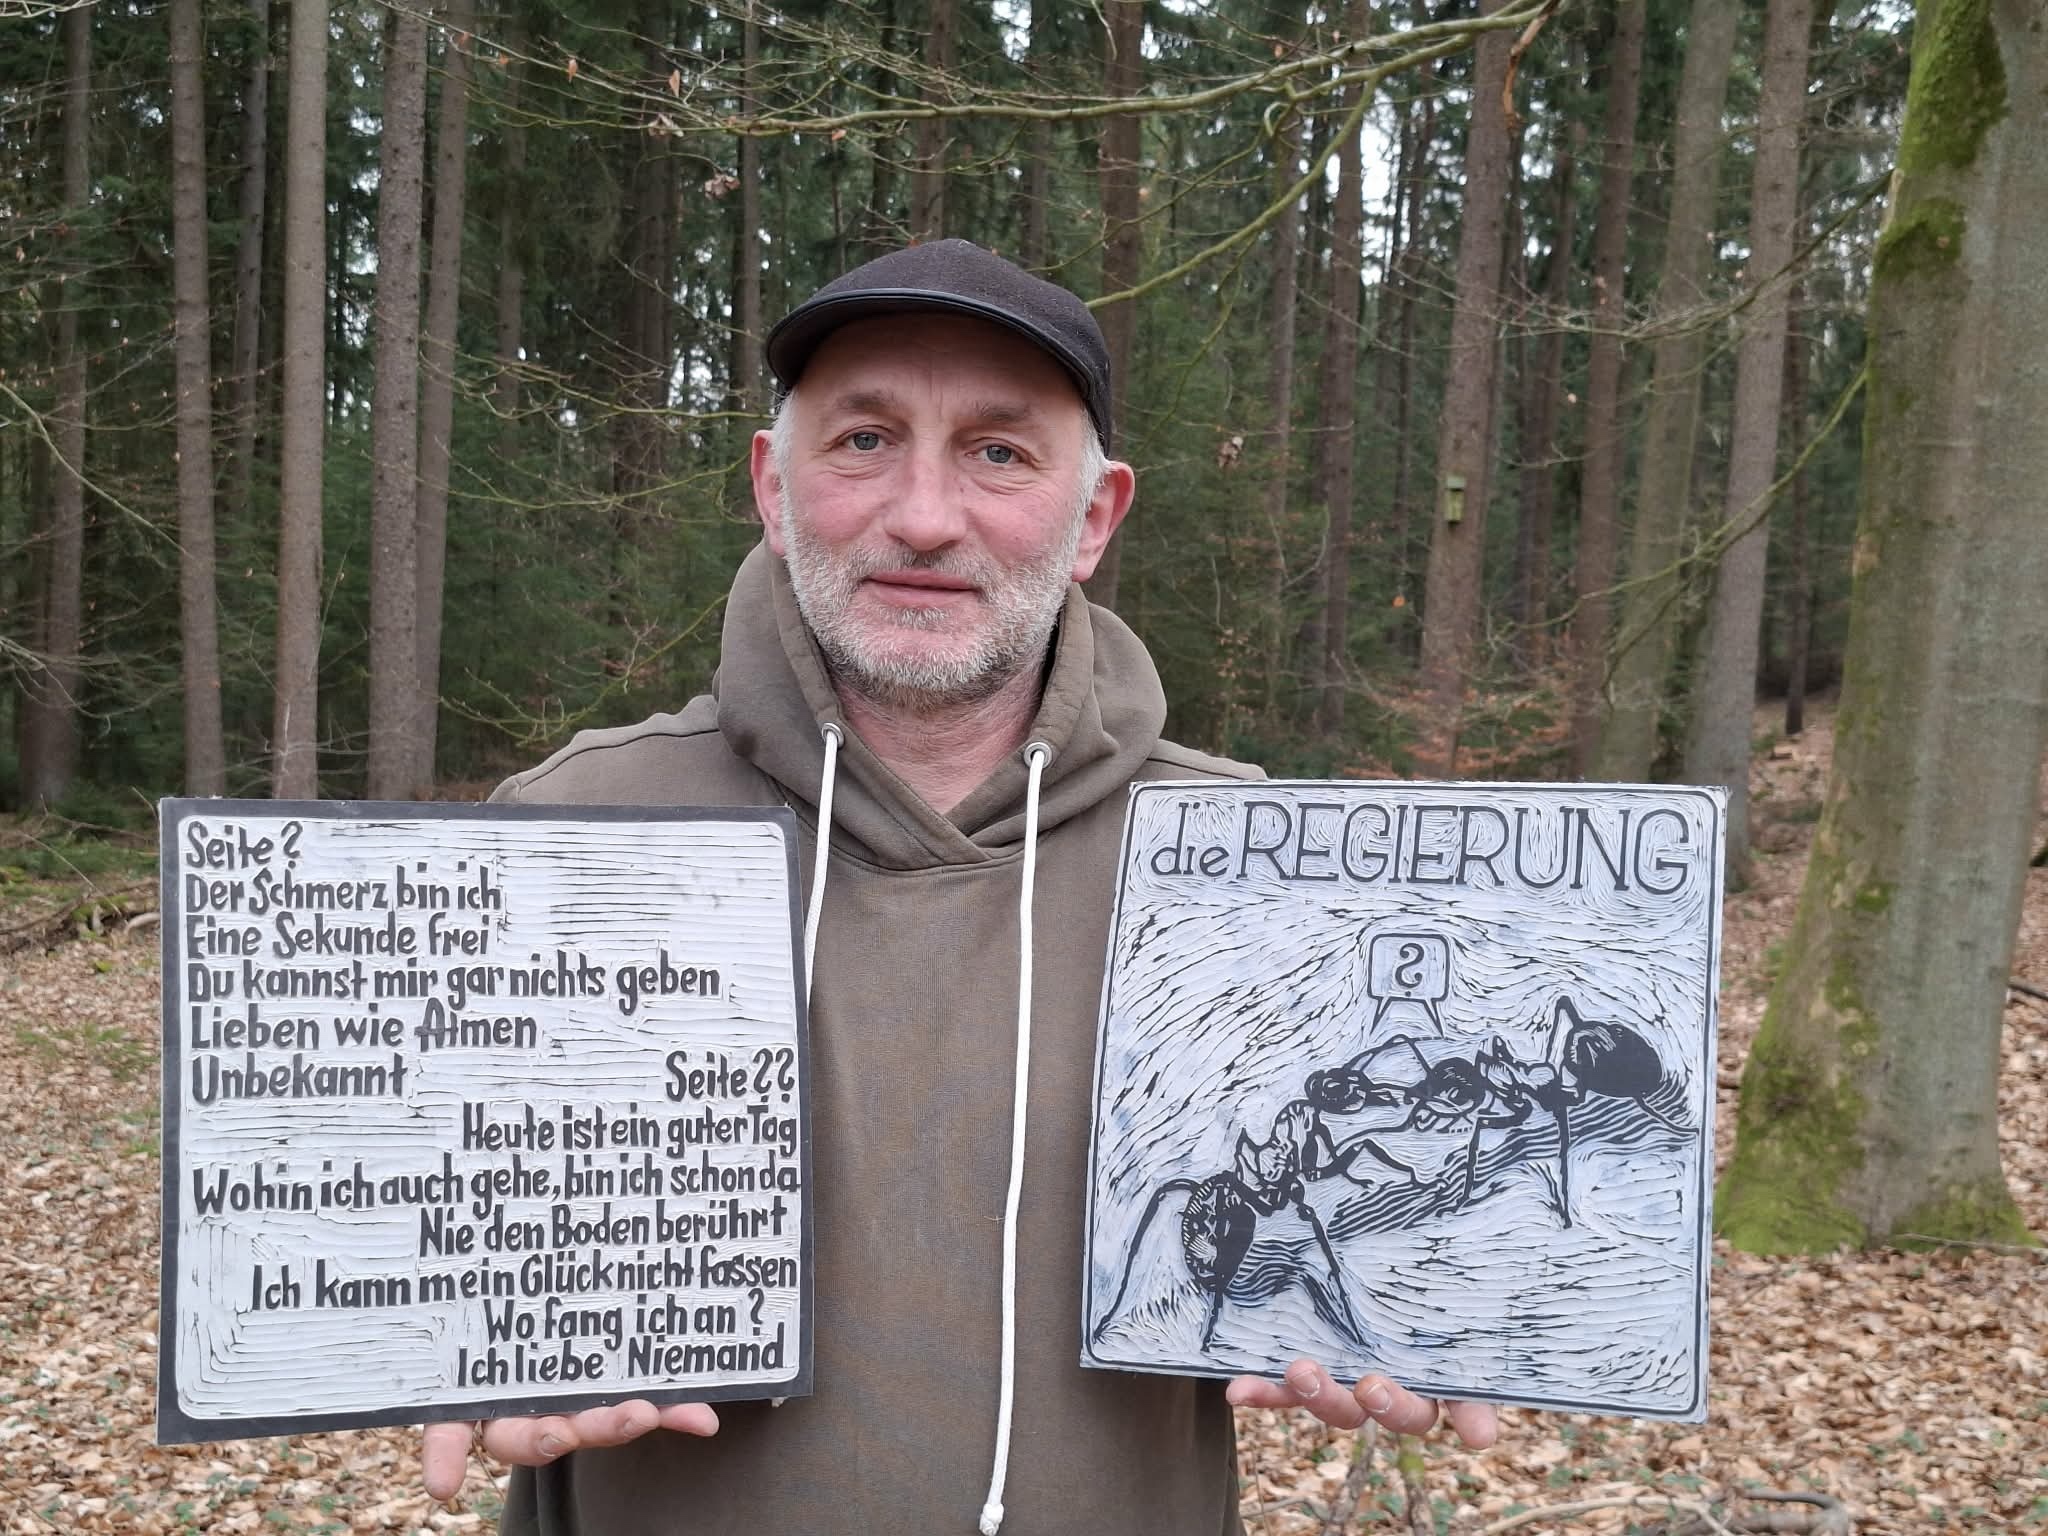 Seite ?
Der Schmerz bin ich
Eine Sekunde frei
Du kannst mir gar nichts geben
Lieben wie Atmen
Unbekannt
Seite ??
Heute ist ein guter Tag
Wohin ich auch gehe, bin ich schon da
Nie den Boden berührt
Ich kann mein Glück nicht fassen
Wo fang ich an ?
Ich liebe Niemand
die REGIERUNG
?